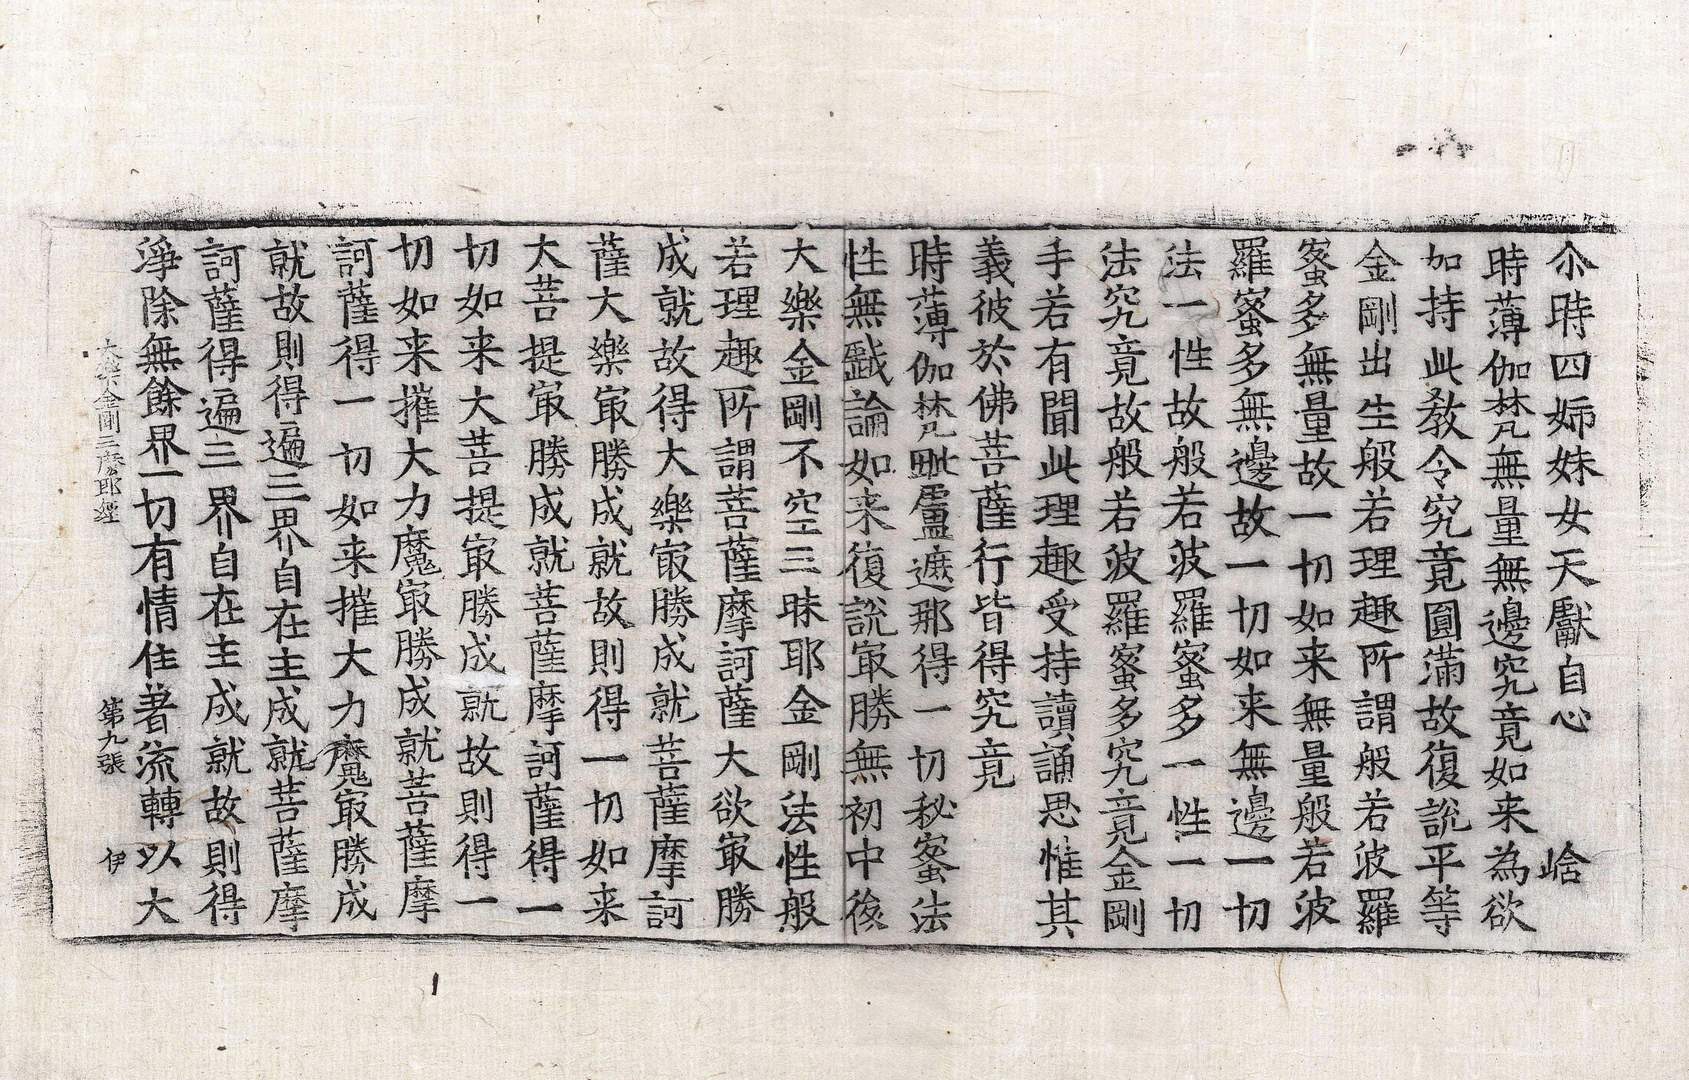 尒時四姉妹女天獻自心　　唅
時薄伽梵無量無邊究竟如来為欲
加持此教令究竟圓滿故復說平等
金剛出生般若理趣所謂般若波羅
蜜多無量故一切如来無量般若波
羅蜜多無邊故一切如来無邊一切
法一性故般若波羅蜜多一性一切
法究竟故般若波羅蜜多究竟金剛
手若有聞此理趣受持讀誦思惟其
義彼於佛菩薩行皆得究竟
時薄伽梵毗盧遮那得一切秘蜜法
性無戲論如来復說㝡勝無初中後
大樂金剛不空三昧耶金剛法性般
若理趣所謂菩薩摩訶薩大欲㝡勝
成就故得大樂㝡勝成就菩薩摩訶
薩大樂㝡勝成就故則得一切如来
大菩提㝡勝成就菩薩摩訶薩得一
切如来大菩提㝡勝成就故則得一
切如来摧大力魔㝡勝成就菩薩摩
訶薩得一切如来摧大力魔㝡勝成
就故則得遍三界自在主成就菩薩摩
訶薩得遍三界自在主成就故則得
淨除無餘界一切有情住著流轉以大
大樂金剛三摩耶經　第九張　伊